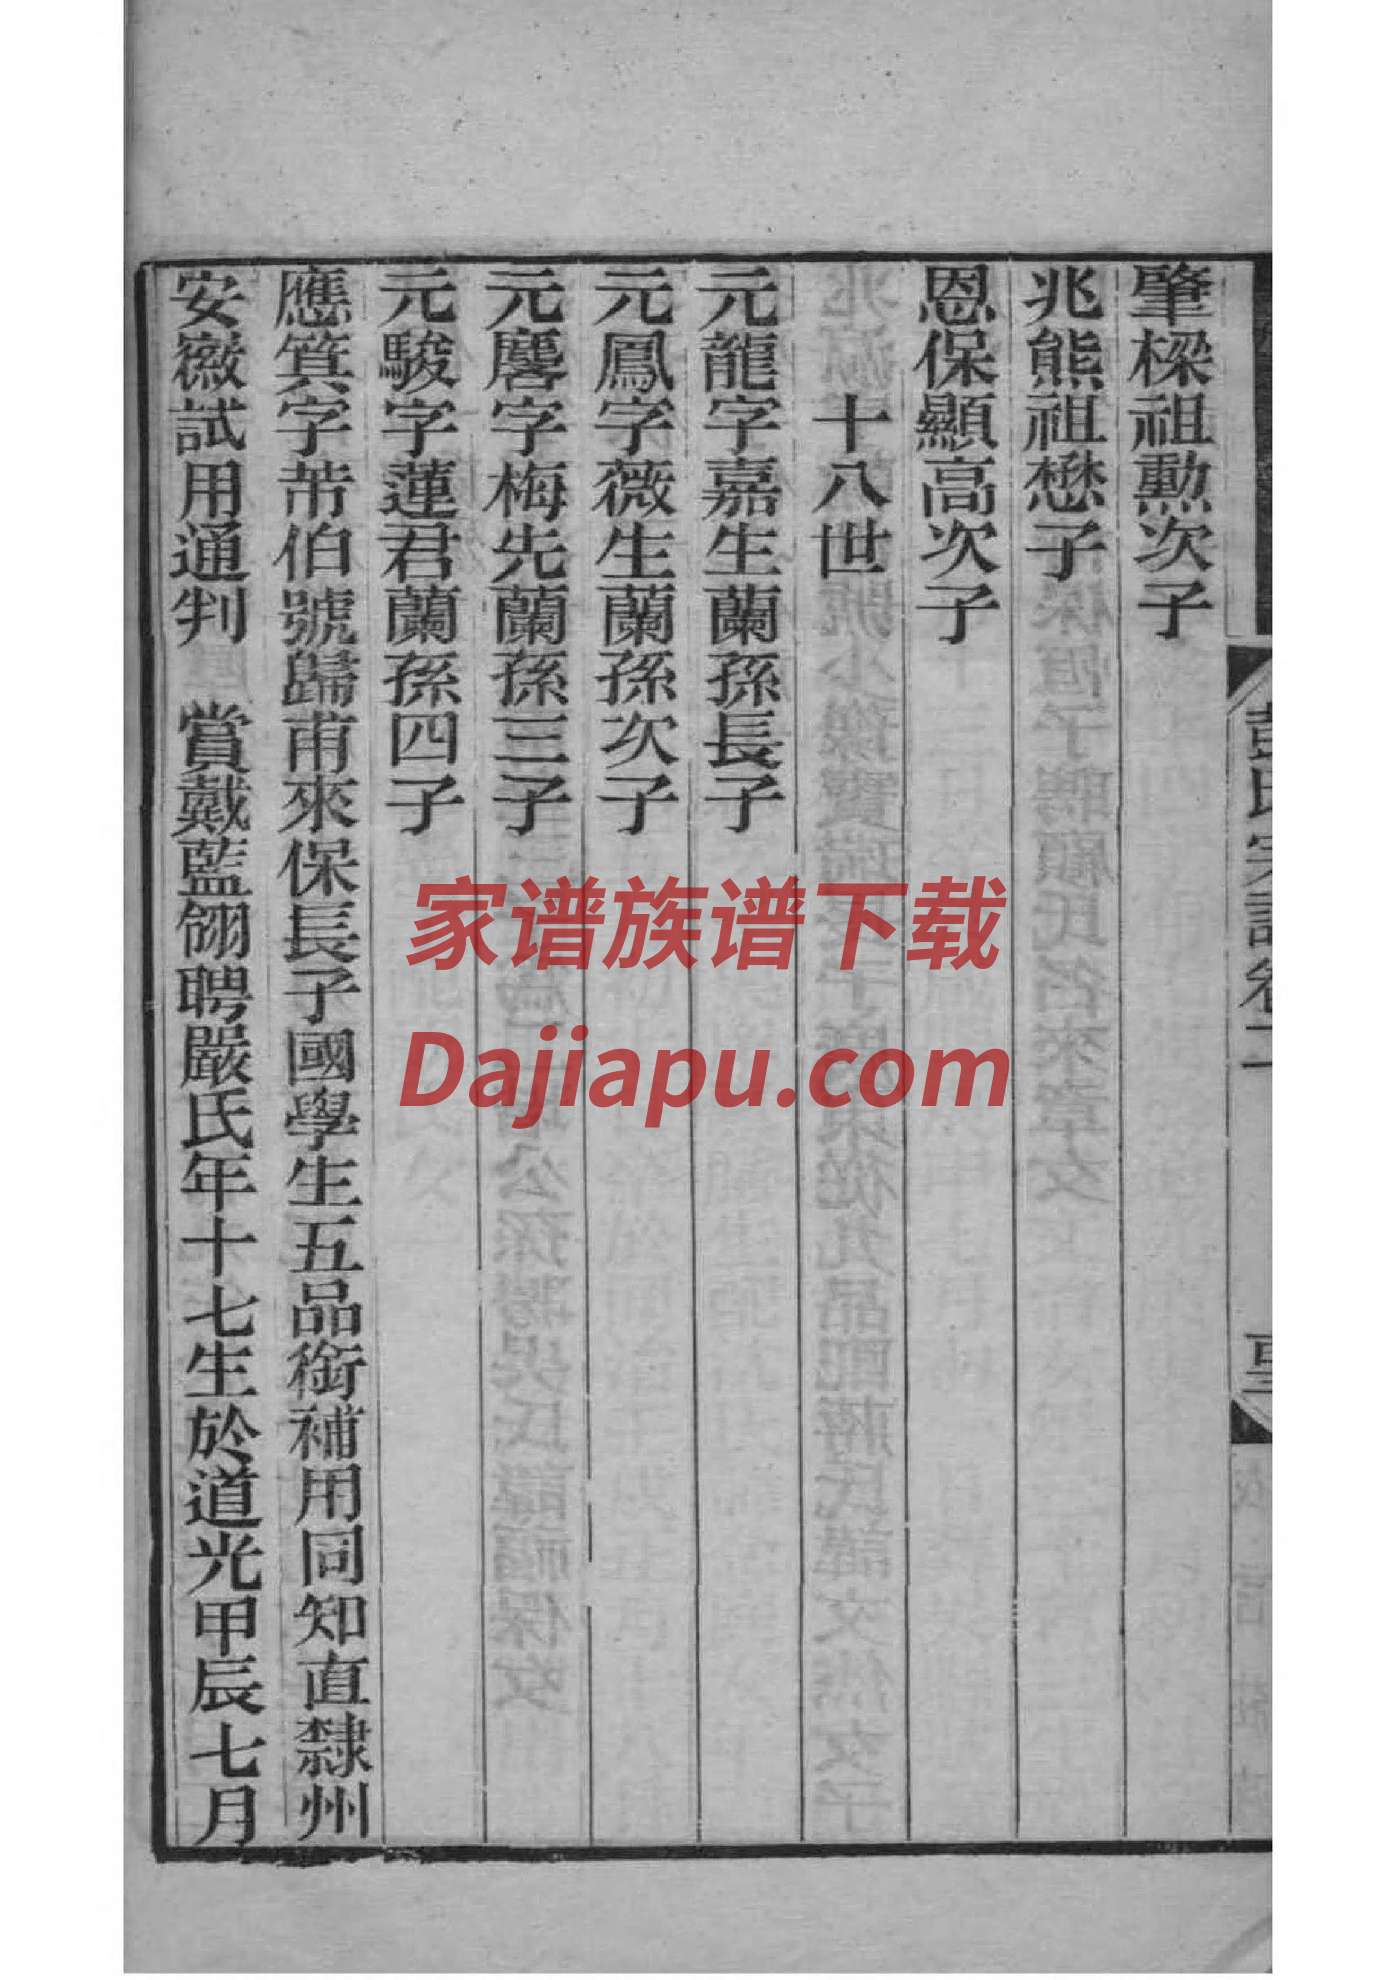 肇樑祖勲次子
兆熊祖懋子
恩保顯高次子
十八世
元龍字嘉生蘭孫長子
元鳳字薇生蘭孫次子
元麐字梅先蘭孫三子
元駿字蓮君蘭孫四子
應箕字芾伯號歸甫來保長子國學生五品銜補用同知直隸州
安徽試用通判 賞戴藍翎聘嚴氏年十七生於道光甲辰七月
彭氏宗譜卷二
家谱族谱下载
Dajiapu.com